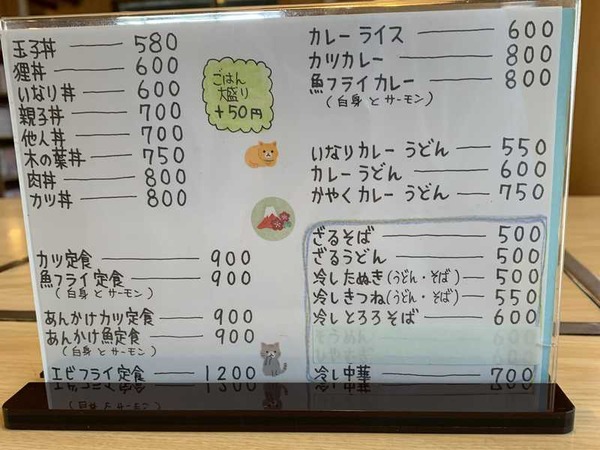 玉子丼 580
狸丼 600
いなり丼 600
親子丼 700
他人丼 700
木の葉丼 750
肉丼 800
カツ丼 800
ごはん
大盛り
+50円
カツ定食 900
魚フライ定食 900
(白身とサーモン)
あんかけカツ定食 900
あんかけ魚定食 900
(白身とサーモン)
エビフライ定食 1200
カレーライス 600
カツカレー 800
魚フライカレー 800
(白身とサーモン)
いなりカレーうどん 550
カレーうどん 600
かやくカレーうどん 750
ざるそば 500
ざるうどん 500
冷したぬき(うどん・そば) 500
冷しきつね(うどん・そば) 550
冷しとろろそば 600
冷し中華 700